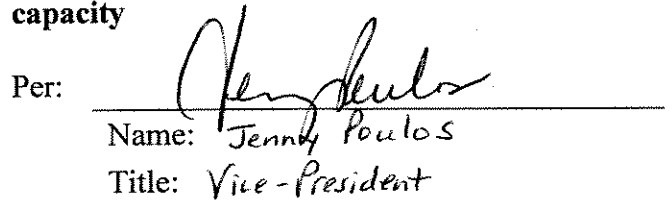 capacity
Per: Jenny Poulos
Name: Jenny Poulos
Title: Vice-President